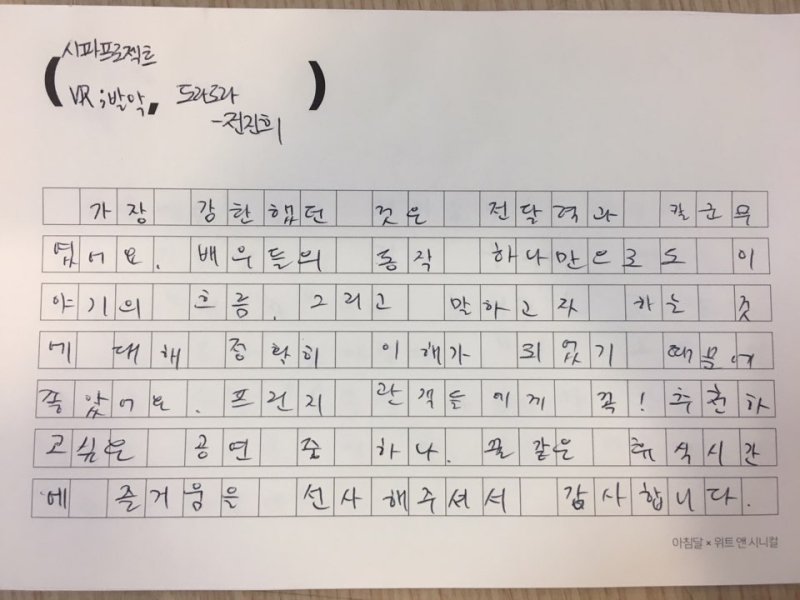 시파프로젝트
( VR;발악, 도라도라 )
-전진희
가장 강한햅던 것은 전달력과 칼군무
였어요. 배우들의 동작 하나만으로도 이
야기의 흐름, 그리고 말하고자 하는 것
에 대해 정확히 이해가 되었기 때문에
좋았어요. 프린지 관객들에게 꼭! 추천하
고싶은 공연 중 하나. 꿀같은 휴식시간
에 즐거움을 선사해주셔서 감사합니다.
아침달 × 위트 앤 시니컬